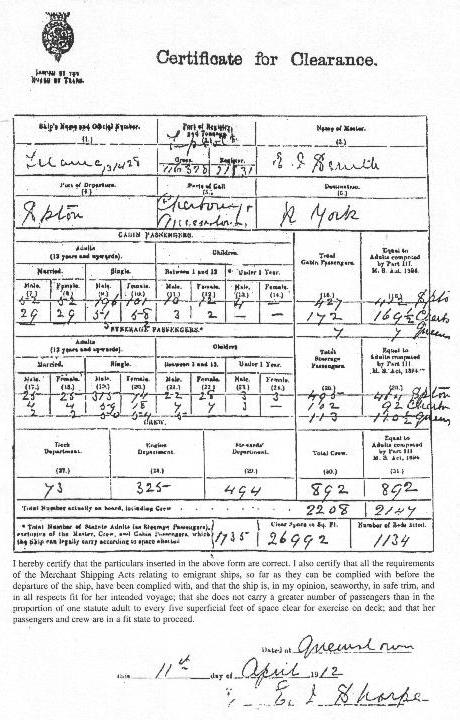 ISSUED BY THE
BOARD OF TRADE.
Certificate for Clearance.
Ship's Name and Official Number. Port of Registry and Tonnage Name of Master.
(1.) (3.)
Titanic, 131428 Gross. Register. E J Smith
Port of Departure. Ports of Call Destination.
(4.) (5.) (6.)
Spton Cherbourg + Queenstown N York
CABIN PASSENGERS.
Adults (12 years and upwards). Children. Total Cabin Passengers. Equal to Adults computed by Part III. M. S. Act, 1894.
Married. Single. Between 1 and 12. Under 1 Year.
Male. Female. Male. Female. Male. Female. Male. Female.
(7.) (8.) (9.) (10.) (11.) (12.) (13.) (14.) (15.) (16.)
427 Spton
29 29 51 58 3 2 — — 172 169½ Cherb
7 7 Queens
STEERAGE PASSENGERS.*
Adults (12 years and upwards). Children Total Steerage Passengers. Equal to Adults computed by Part III. M. S. Act, 1894.
Married. Single. Between 1 and 12. Under 1 Year.
Male. Female. Male. Female. Male. Female. Male. Female.
(17.) (18.) (19.) (20.) (21.) (22.) (23.) (24.) (25.) (26.)
Spton
4 4 102 Cherbn
113 Queens
CREW.
Deck Department. Engine Department. Stewards' Department. Total Crew. Equal to Adults computed by Part III M. S. Act, 1894
(27.) (28.) (29.) (30.) (31.)
73 325 494 892 892
Total Number actually on board, including Crew 2208 2147
* Total Number of Statute Adults (as Steerage Passengers), exclusive of the Master, Crew, and Cabin Passengers, which the Ship can legally carry according to space allotted 1735
Clear Space in Sq. Ft. 26992
Number of Beds fitted. 1134
I hereby certify that the particulars inserted in the above form are correct. I also certify that all the requirements
of the Merchant Shipping Acts relating to emigrant ships, so far as they can be complied with before the
departure of the ship, have been complied with, and that the ship is, in my opinion, seaworthy, in safe trim, and
in all respects fit for her intended voyage; that she does not carry a greater number of passengers than in the
proportion of one statute adult to every five superficial feet of space clear for exercise on deck; and that her
passengers and crew are in a fit state to proceed.
Dated at Queenstown
this 11th day of April 1912
E J Sharpe